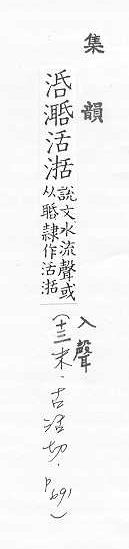 集韻
活㵧
說文水流聲或
从隸作活㵧
入聲
(十三末·古活切·p691)